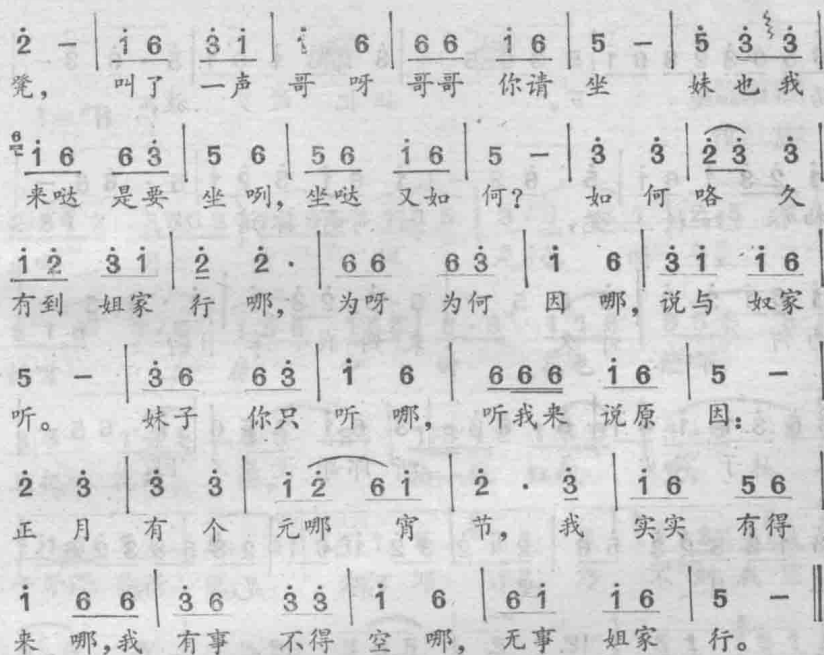 2̇ - | i̇ 6 3̇ i̇ | i̇ 6 | 6 6 i̇ 6 | 5 - | 5̇ 3̇ 3̇
凳， 叫了 一声 哥 呀 哥哥 你请 坐 妹也我
i̇ 6 6 3̇ | 5 6 | 5 6 i̇ 6 | 5 - | 3̇ 3̇ | 2̇ 3̇ 3̇
来哒 是要 坐 咧，坐哒 又如 何？ 如 何 咯 久
i̇ 2̇ 3̇ i̇ | 2̇ 2̇ · | 6 6 6 3̇ | i̇ 6 | 3̇ i̇ i̇ 6
有到 姐家 行 哪，为呀 为何 因 哪，说与 奴家
5 - | 3̇ 6 6 3̇ | i̇ 6 | 6 6 6 i̇ 6 | 5 -
听。 妹子 你只 听 哪， 听我来 说原 因：
2̇ 3̇ | 3̇ 3̇ | i̇ 2̇ 6 i̇ | 2̇ · 3̇ | i̇ 6 5 6
正 月 有 个 元哪 宵 节，我 实实 有得
i̇ 6 6 | 3̇ 6 3̇ 3̇ | i̇ 6 | 6 i̇ i̇ 6 | 5 - ‖
来 哪，我 有事 不得 空 哪，无事 姐家 行。